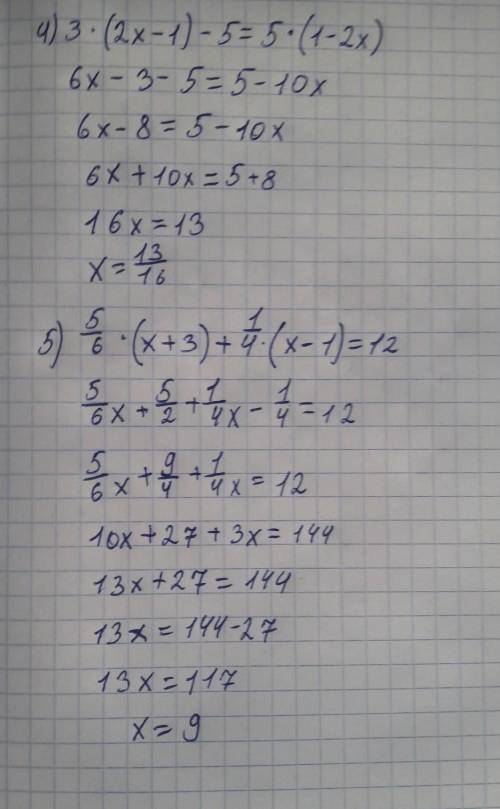 4) 3·(2x-1)-5=5·(1-2x)
6x-3-5=5-10x
6x-8=5-10x
6x+10x=5+8
16x=13
x=13/16
5) 5/6·(x+3)+1/4·(x-1)=12
5/6x+5/2+1/4x-1/4=12
5/6x+9/4+1/4x=12
10x+27+3x=144
13x+27=144
13x=144-27
13x=117
x=9